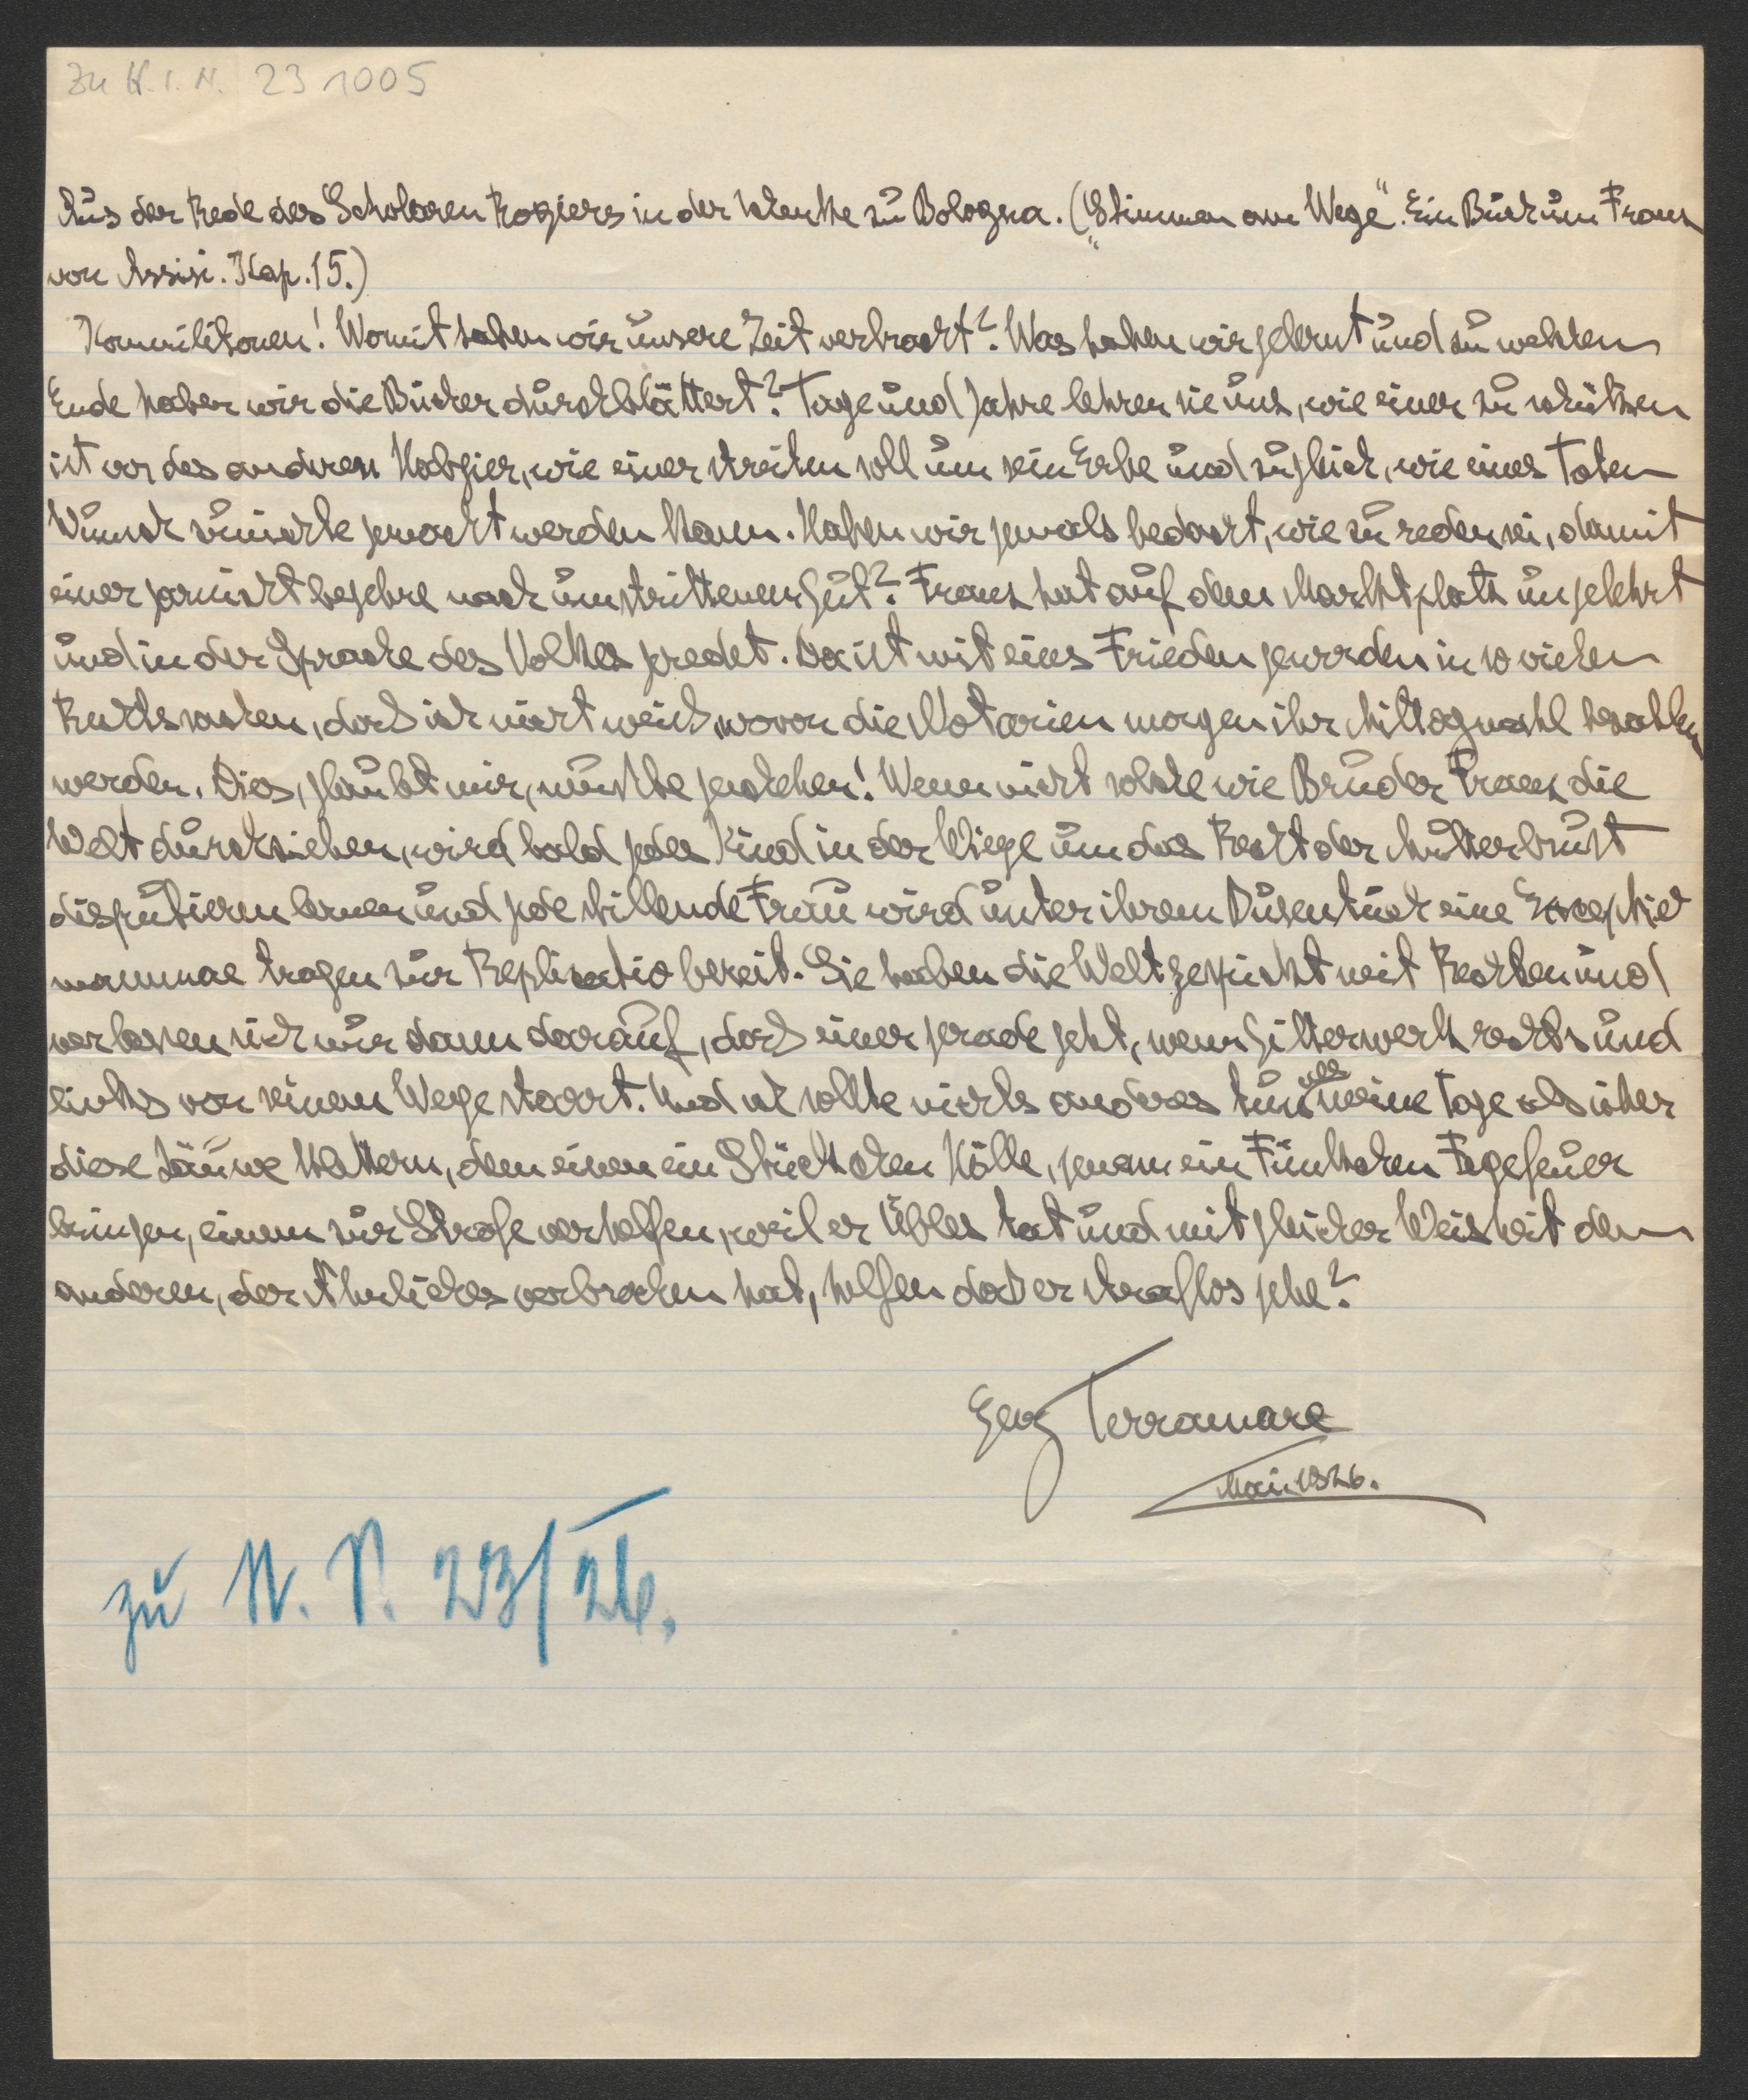 Zu H.I.N. 231005
Aus der Rede des Scholaren Rogiers in der Schenke zu Bologna. („Stimmen am Wege". Ein Buch um Franz
von Assisi. Kap. 15.)
Kommilitonen! Womit haben wir unsere Zeit verbracht? Was haben wir gelernt und zu welchem
Ende haben wir die Bücher durchblättert? Tage und Jahre lehren sie uns, wie einer zu schützen
ist vor des anderen Habgier, wie einer streiten soll um sein Erbe und zugleich, wie eines Toten
Wunsch zunichte gemacht werden kann. Haben wir jemals bedacht, wie zu reden sei, damit
einer gar nicht begehre nach umstrittenem Gut? Franz hat auf dem Marktplatz ungelehrt
und in der Sprache des Volkes geredet. Da ist mit eins Frieden geworden in so vielen
Rechtssachen, daß ich nicht weiß, wovon die Notarien morgen ihr Mittagmahl bezahlen
werden. Dies, glaubt mir, mußte geschehen! Wenn nicht solche wie Bruder Franz die
Welt durchziehen, wird bald jedes Kind in der Wiege um das Recht der Mutterbrust
disputieren lernen und jede stillende Frau wird unter ihrem Busentuch eine Exceptio
mammae tragen zur Replicatio bereit. Sie haben die Welt gespickt mit Rechten und
verlassen sich nur dann darauf, daß einer gerade geht, wenn Gitterwerk rechts und
links von seinem Wege starrt. Und ich sollte nichts anderes tun all meine Tage als über
diese Zäune klettern, dem einen ein Stückchen Hölle, jenem ein Fünkchen Fegefeuer
bringen, einem zur Strafe verhelfen, weil er Übles tat und mit gleicher Weisheit dem
anderen, der Ähnliches verbrochen hat, helfen daß er straflos gehe?
Georg Terramare
Mai 1926.
zu N. P. 23/26.